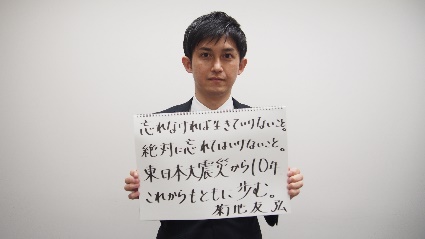 忘れなければ生きていけないこと。
絶対に忘れてはいけないこと。
東日本大震災から10年
これからもともに歩む。
菊池友弘